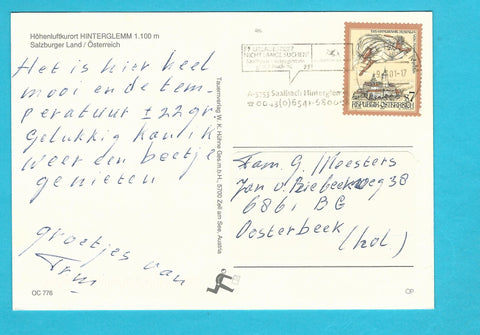 Höhenluftkurort HINTERGLEMM 1.100 m
Salzburger Land / Österreich
Het is hier heel
mooi en de tem-
peratuur ± 22 gr.
Gelukkig kan ik
weer een beetje
genieten
groetjes van
OC 776
Tauernverlag W. K. Hühne Ges.m.b.H., 5700 Zell am See, Austria
NICHT LANGE SUCHEN
A-5753 Saalbach Hinterglemm
☎ 0043(0)6541-6800
01-17
REPUBLIK ÖSTERREICH
S 7
Fam. G. Moesters
Jan v. Riebeekweg 38
6861 BG
Oosterbeek
(hol)
CP